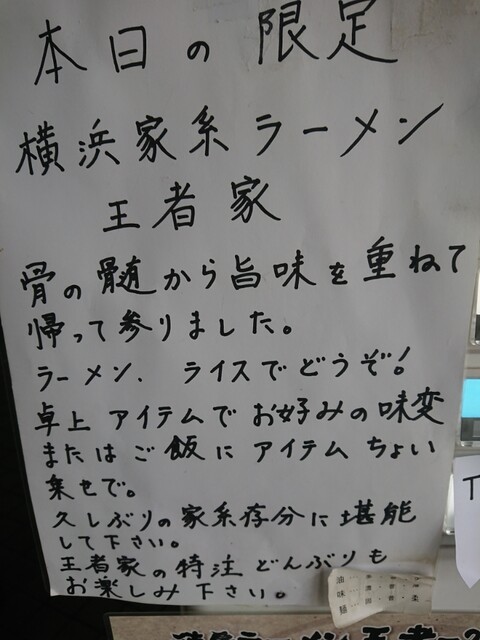 本日の限定
横浜家系ラーメン
王者家
骨の髄から旨味を重ねて
帰って参りました。
ラーメン、ライスでどうぞ!
卓上アイテムでお好みの味変
またはご飯にアイテムちょい
乗せで。
久しぶりの家系存分に堪能
して下さい。
王者家の特注どんぶりも
お楽しみ下さい。
油味麺
T